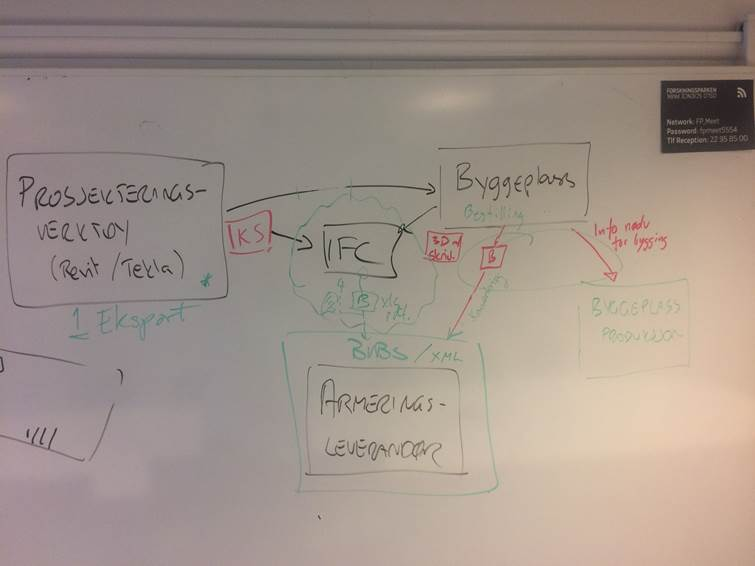 FORSKNINGSPARKEN
OSLO SCIENCE PARK
Network: FP_Meet
Password: fpmeet5554
Tlf Reception: 22 95 85 00
PROSJEKTERINGS-
VERKTØY
(Revit / Tekla)
*
1 Eksport
KS
IFC
Byggeplass
Bestilling
3D m/
B
Info nødv
for bygging
BYGGEPLASS
PRODUKSJON
B
BVBS / XML
ARMERINGS-
LEVERANDØR